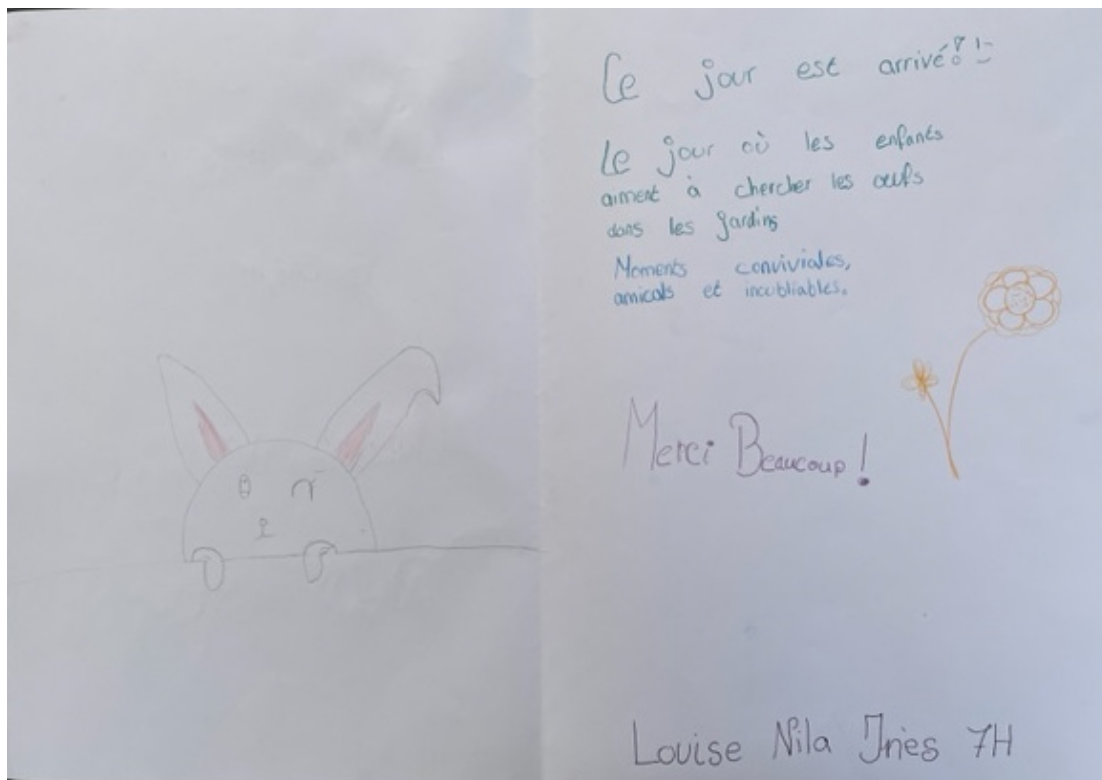 Ce jour est arrivé
Le jour où les enfants
aiment à chercher les œufs
dans les jardins
Moments conviviales,
amicals et inoubliables.
Merci Beaucoup !
Louise Nila Inès 7H